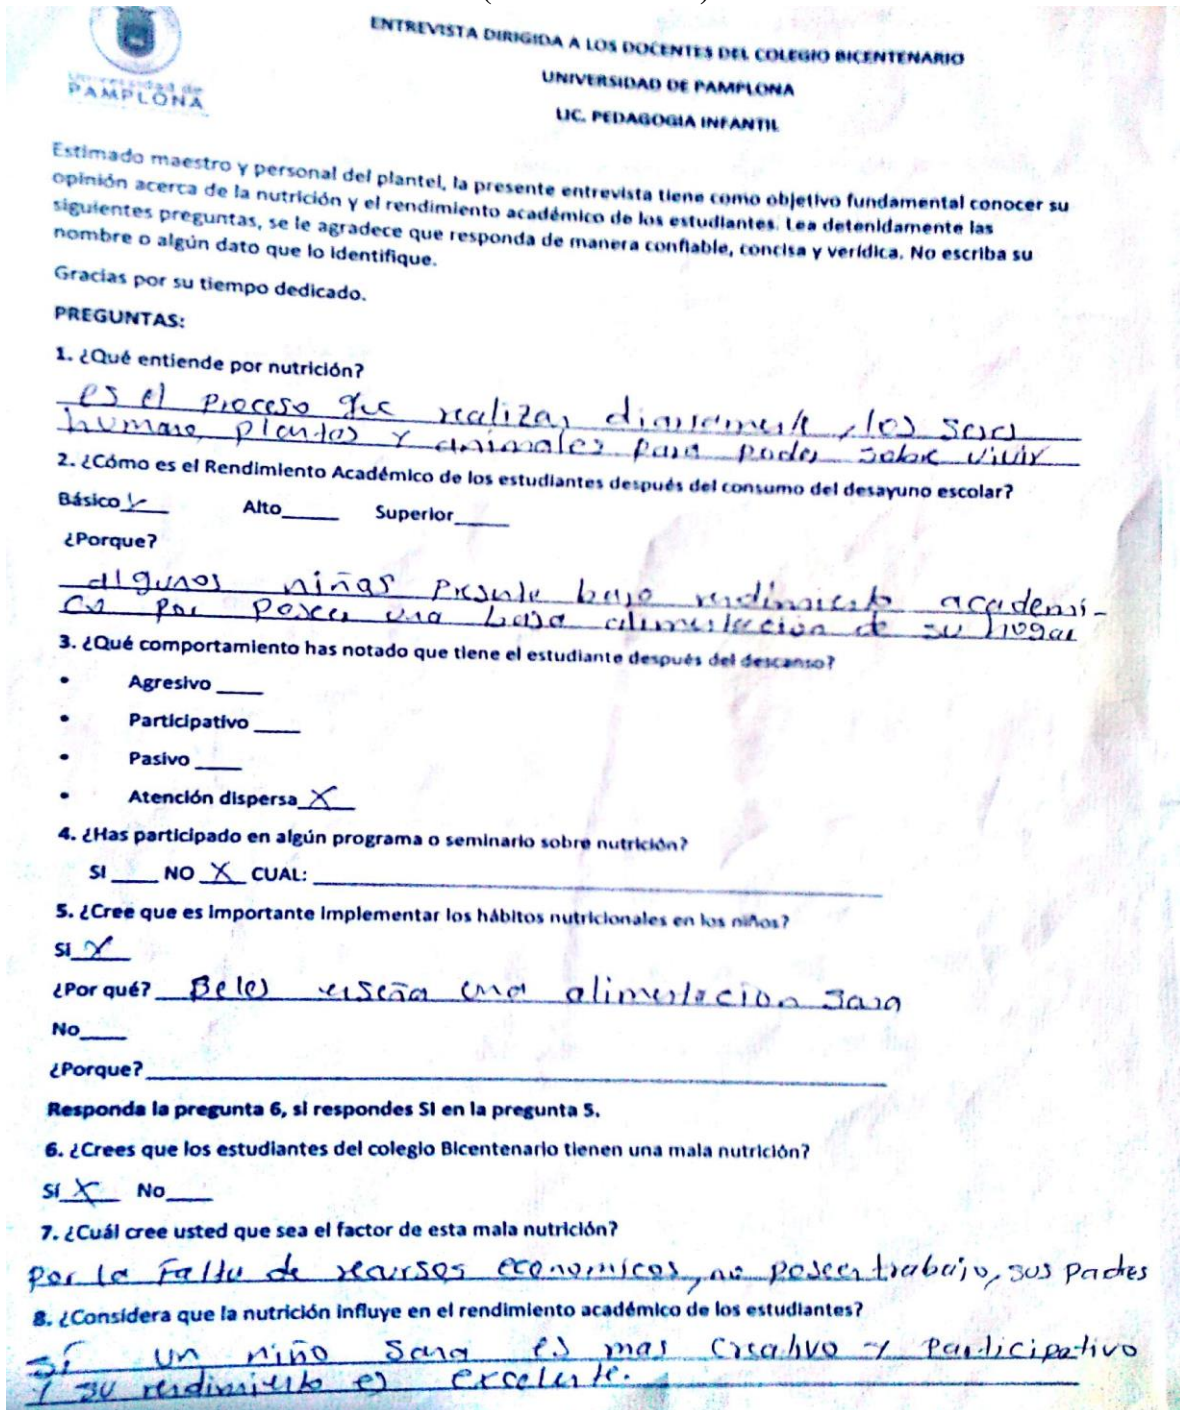 Universidad de
PAMPLONA
ENTREVISTA DIRIGIDA A LOS DOCENTES DEL COLEGIO BICENTENARIO
UNIVERSIDAD DE PAMPLONA
LIC. PEDAGOGIA INFANTIL
Estimado maestro y personal del plantel, la presente entrevista tiene como objetivo fundamental conocer su
opinión acerca de la nutrición y el rendimiento académico de los estudiantes. Lea detenidamente las
siguientes preguntas, se le agradece que responda de manera confiable, concisa y verídica. No escriba su
nombre o algún dato que lo identifique.
Gracias por su tiempo dedicado.
PREGUNTAS:
1. ¿Qué entiende por nutrición?
es el proceso que realizan diariamente, los seres
humano, plantas y animales para poder sobre vivir
2. ¿Cómo es el Rendimiento Académico de los estudiantes después del consumo del desayuno escolar?
Básico ____ Alto____ Superior____
¿Porque?
algunos niñas presente bajo rendimiento academi-
co por poseer una baja alimentacion de su hogar
3. ¿Qué comportamiento has notado que tiene el estudiante después del descanso?
• Agresivo ____
• Participativo ____
• Pasivo ____
• Atención dispersa X
4. ¿Has participado en algún programa o seminario sobre nutrición?
SI ____ NO X CUAL:
5. ¿Cree que es importante implementar los hábitos nutricionales en los niños?
Si X
¿Por qué? Se les enseña una alimentacion sana
No____
¿Porque?
Responda la pregunta 6, si respondes SI en la pregunta 5.
6. ¿Crees que los estudiantes del colegio Bicentenario tienen una mala nutrición?
Sí X No____
7. ¿Cuál cree usted que sea el factor de esta mala nutrición?
por la falta de recursos economicos, no poseen trabajo, sus padres
8. ¿Considera que la nutrición influye en el rendimiento académico de los estudiantes?
sí un niño sano es mas creativo y participativo
y su rendimiento es excelente.